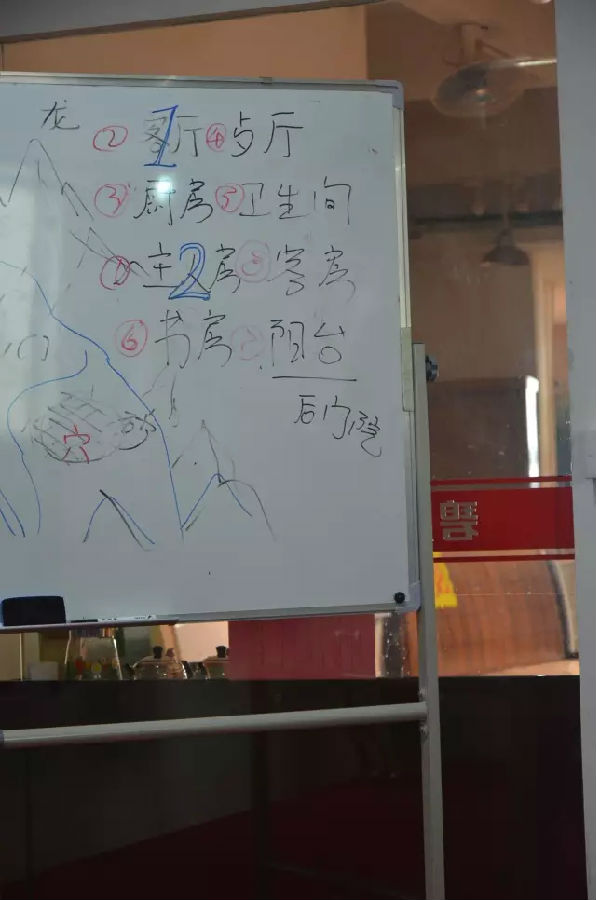 龙
② 客厅 ④ 歺厅
1
③ 厨房 ⑤ 卫生间
① 主人房 ⑧ 客房
2
⑥ 书房 阳台
后门
穴
碧